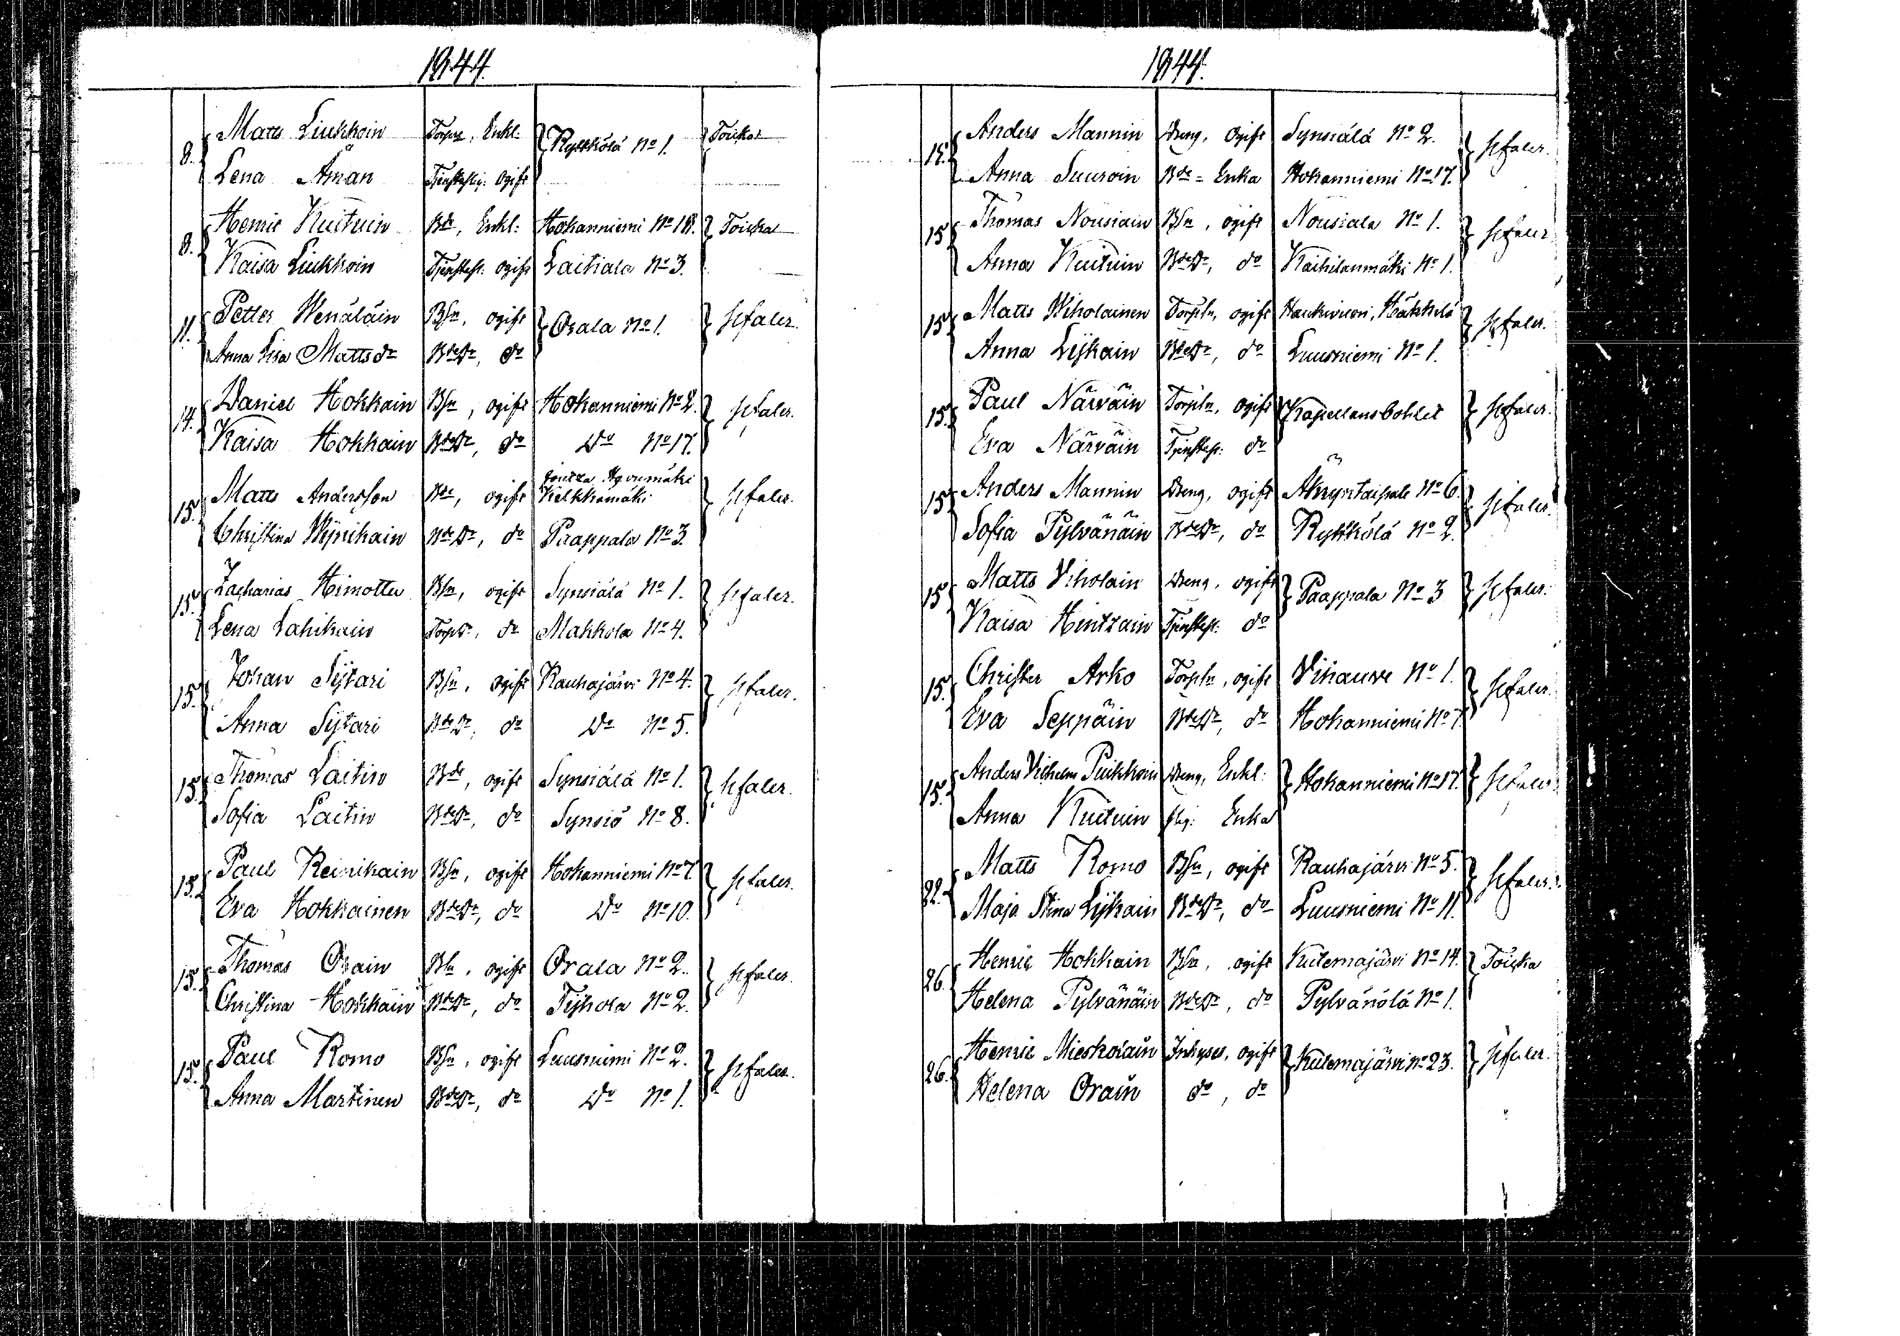 1844.
8. Matts Liukkoin Torpr, Enkl: Rykkölä No 1. Toiska
Lena Åman Tjenstepig: ogift
8. Henric Kuituin Bde, Enkl: Hokanniemi No 18. Toiska
Kaisa Liukkoin Tjenstep: ogift Laitiala No 3.
11. Petter Wenäläin Bsn, ogift Orala No 1. Hfaler.
Anna Lisa Mattsdr BdeDr, do
14. Daniel Hokkain Bsn, ogift Hokanniemi No 2. Hfaler.
Kaisa Hokkain BdeDr, do Do No 17.
15. Matts Andersson Bde, ogift Kelkkamäki Hfaler.
Christina Wynikain BdeDr, do Paappala No 3.
15. Zacharias Himottu Bsn, ogift Synsiälä No 1. Hfaler.
Lena Lahikain TorpDr, do Makkola No 4.
15. Johan Sytari Bsn, ogift Rauhajärvi No 4. Hfaler.
Anna Sytari BdeDr, do Do No 5.
15. Thomas Laitin Bde, ogift Synsiälä No 1. Hfaler.
Sofia Laitin BdeDr, do Synsiö No 8.
15. Paul Reinikain Bsn, ogift Hokanniemi No 7. Hfaler.
Eva Hokkainen BdeDr, do Do No 10.
15. Thomas Orain Bsn, ogift Orala No 2. Hfaler.
Christina Hokkain BdeDr, do Tyhola No 2.
15. Paul Romo Bsn, ogift Luusniemi No 2. Hfaler.
Anna Martinen BdeDr, do Do No 1.
1844.
15. Anders Mannin Dreng, ogift Synsiälä No 2. Hfaler.
Anna Suuroin Bde= Enka Hokanniemi No 17.
15 Thomas Nousiain Bsn, ogift Nousiala No 1. Hfaler
Anna Kuituin BdeDr, do Kaihilanmäki No 1.
15 Matts Wiholainen Torpsn, ogift Haukivuori, Häkkilä Hfaler.
Anna Lyhain BdeDr, do Luusniemi No 1.
15. Paul Närväin Torpsn, ogift Kapellansbohlet Hfaler.
Eva Närväin Tjenstep: do
15 Anders Mannin Dreng, ogift No 6. Hfaler.
Sofia Pylvänäin BdeDr, do Rykkölä No 2.
15 Matts Viholain Dreng, ogift Paappala No 3 Hfaler.
Kaisa Hintzain Tjenstep: do
15. Christer Arko Torpsn, ogift Vihauve No 1. Hfaler.
Eva Seppäin BdeDr, do Hokanniemi No 7.
15. Anders Vilhelm Puikkoin Dreng, Enkl: Hokanniemi No 17. Hfaler.
Anna Kuituin Enka
22. Matts Romo Bsn, ogift Rauhajärvi No 5. Hfaler.
Maja Stina Lyhain BdeDr, do Luusniemi No 11.
26. Henric Hokkain Bsn, ogift Kutemajärvi No 14. Toiska
Helena Pylvänäin BdeDr, do Pylvänölä No 1.
26. Henric Mieskolain Inhyses, ogift Kutemajärvi No 23. Hfaler.
Helena Orain do, do